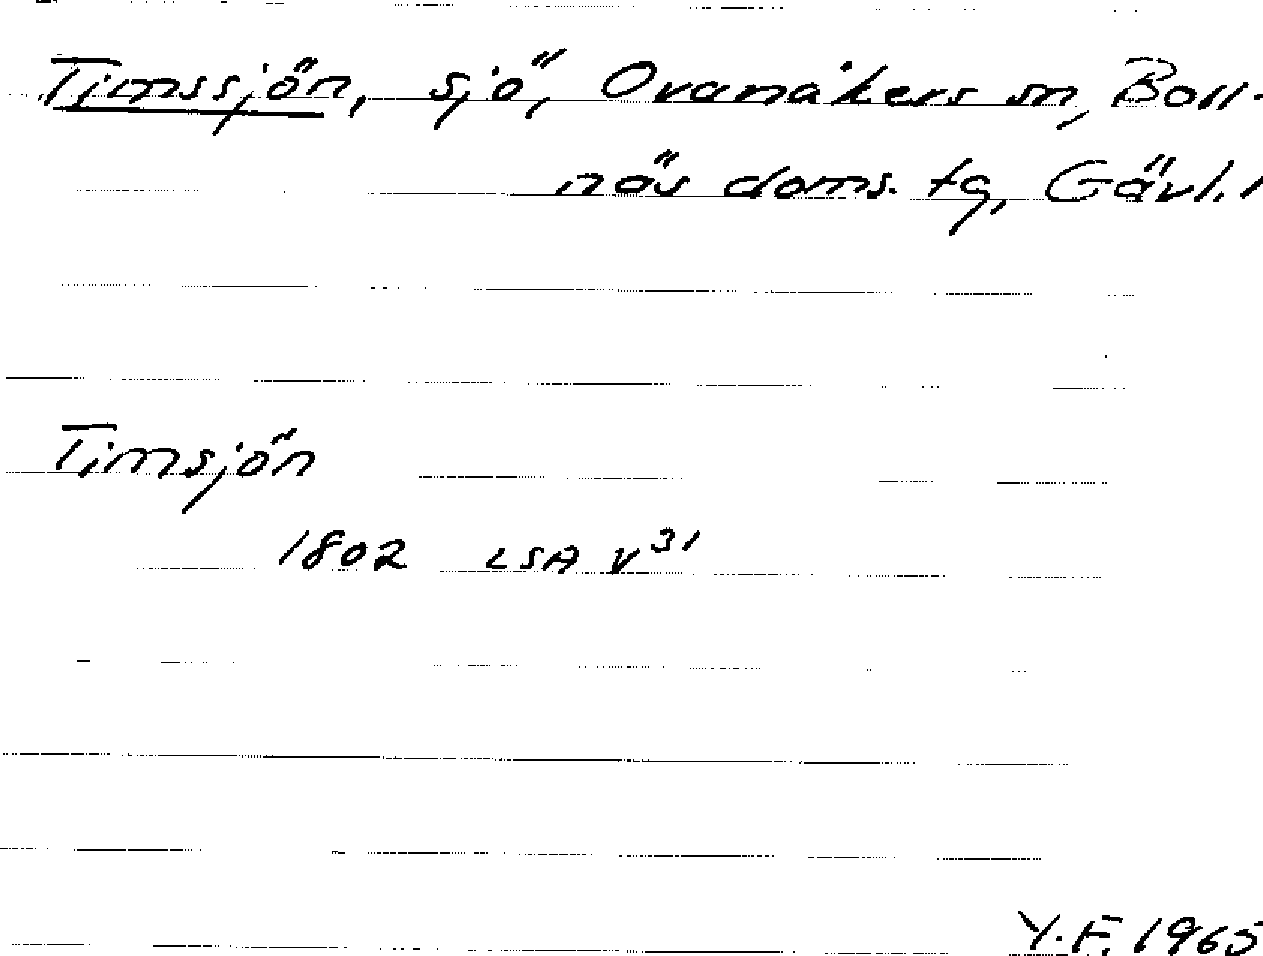 Timssjön, sjö, Ovanåkers sn, Boll-
näs doms. tg, Gävl. l
Timsjön
1802 LSA V31
Y.F. 1965